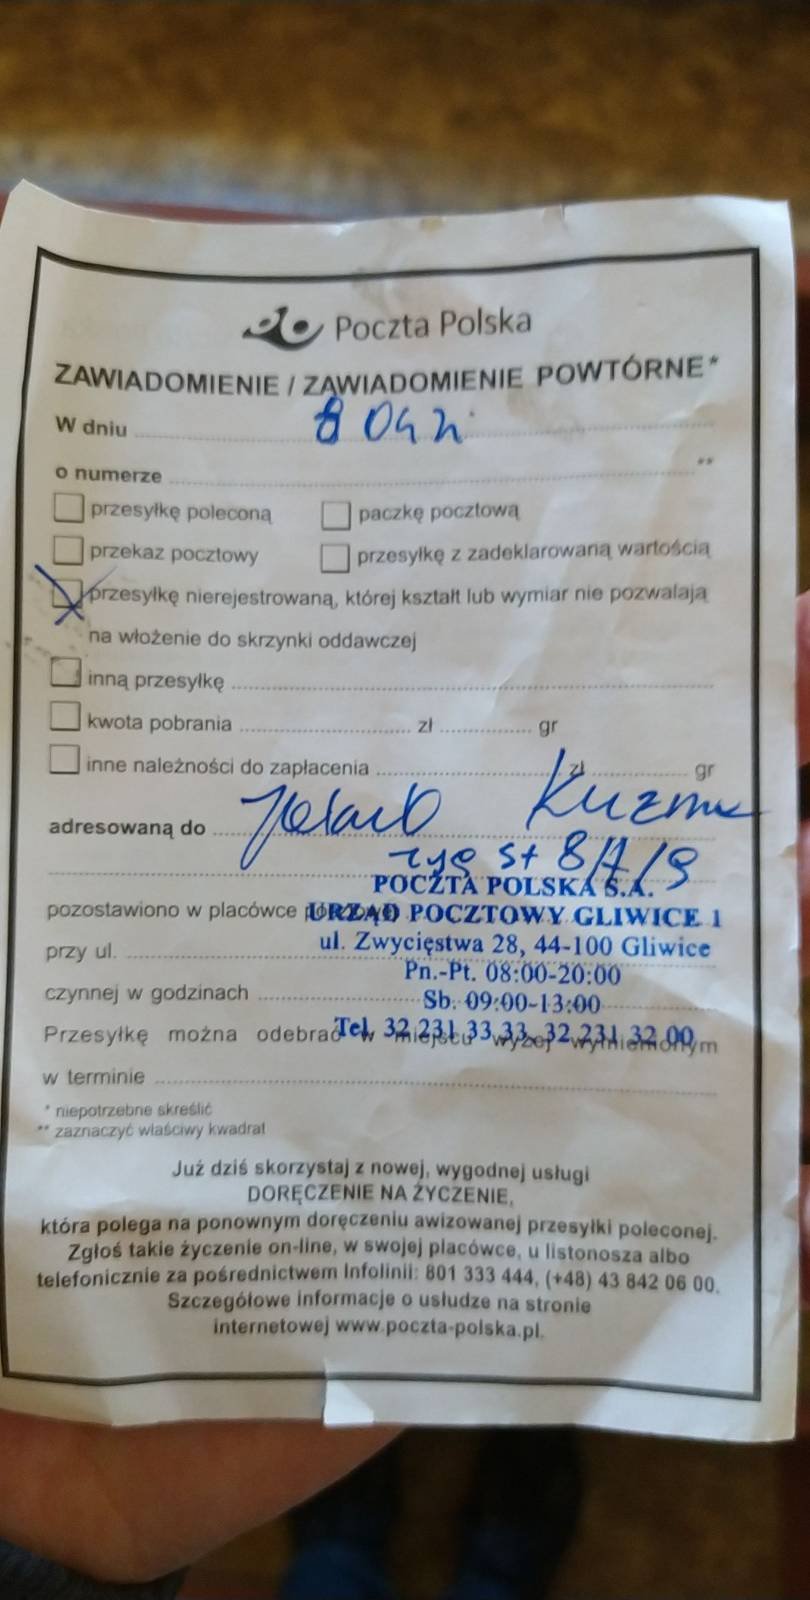 Poczta Polska
ZAWIADOMIENIE / ZAWIADOMIENIE POWTÓRNE*
W dniu
o numerze **
przesyłkę poleconą paczkę pocztową
przekaz pocztowy przesyłkę z zadeklarowaną wartością
przesyłkę nierejestrowaną, której kształt lub wymiar nie pozwalają
na włożenie do skrzynki oddawczej
inną przesyłkę
kwota pobrania zł gr
inne należności do zapłacenia zł gr
adresowaną do
8/7/9
POCZTA POLSKA S.A.
pozostawiono w placówce URZĄD POCZTOWY GLIWICE 1
przy ul. ul. Zwycięstwa 28, 44-100 Gliwice
Pn.-Pt. 08:00-20:00
czynnej w godzinach Sb. 09:00-13:00
Przesyłkę można odebrać w miejscu wyżej wymienionym
Tel. 32 231 33 33, 32 231 32 00
w terminie
* niepotrzebne skreślić
** zaznaczyć właściwy kwadrat
Już dziś skorzystaj z nowej, wygodnej usługi
DORĘCZENIE NA ŻYCZENIE,
która polega na ponownym doręczeniu awizowanej przesyłki poleconej.
Zgłoś takie życzenie on-line, w swojej placówce, u listonosza albo
telefonicznie za pośrednictwem Infolinii: 801 333 444, (+48) 43 842 06 00.
Szczegółowe informacje o usłudze na stronie
internetowej www.poczta-polska.pl.